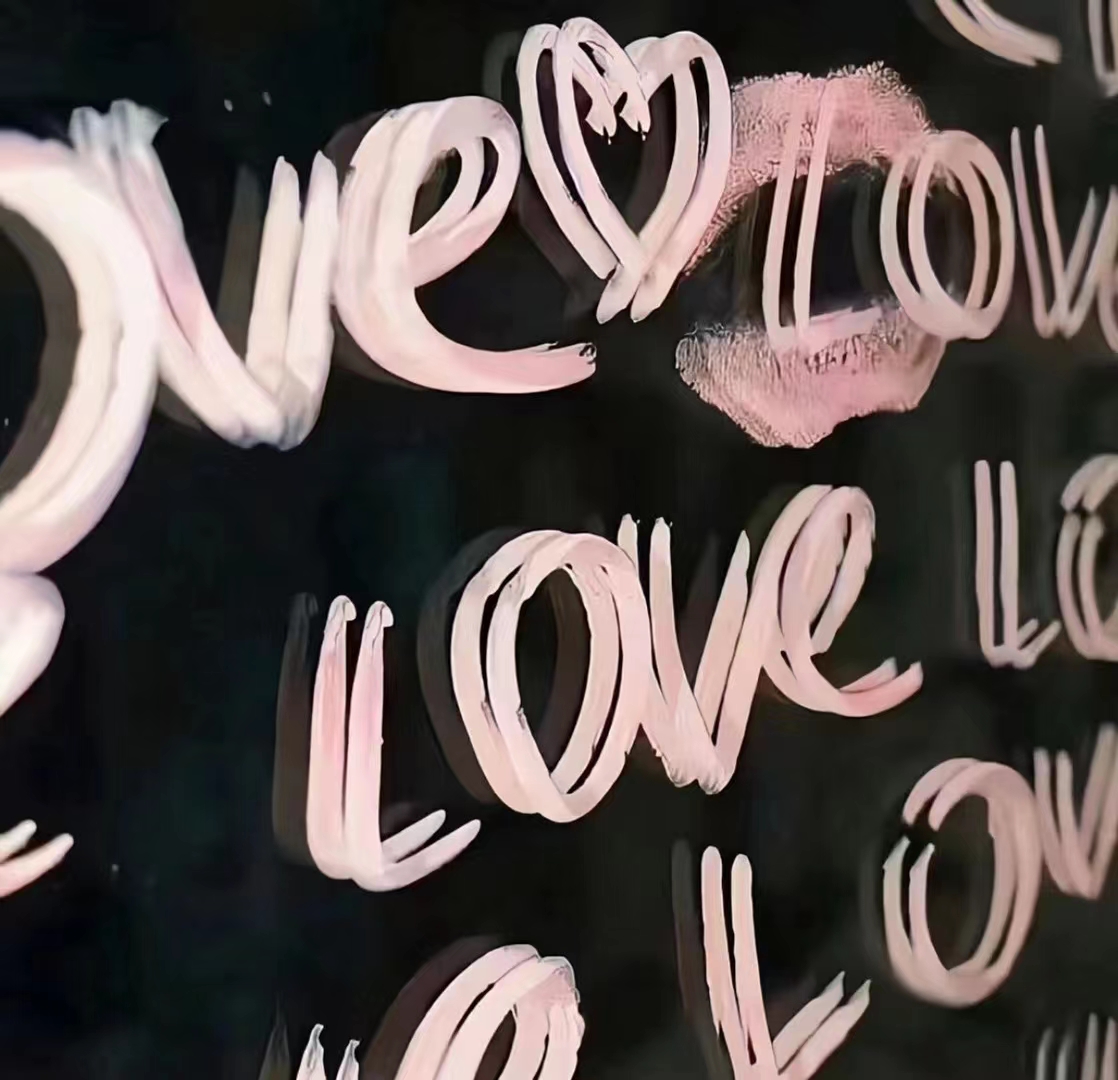 ove♡Lov
Love Lo
Lov